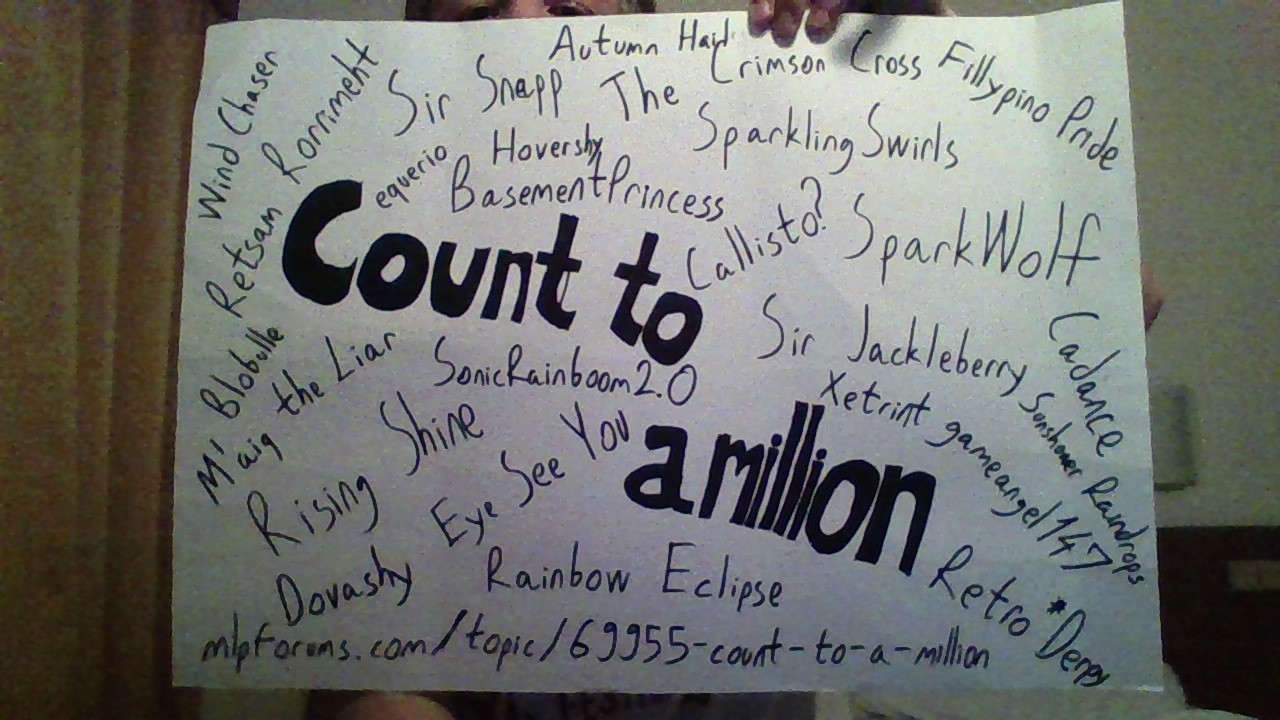 Autumn
Crimson Cross
Fillypino Pride
Wind Chaser
Retsam Rorriment
Sir Snapp The
SparklingSwirls
Hovershy
equerio
BasementPrincess
Callisto?
SparkWolf
Count to
a million
Sir Jackleberry
Cadance
SonicRainboom2.0
Xetrint
gameangel147
Sunshower Raindrops
M'Blobulle
the Liar
Rising Shine
Eye See You
Dovashy
Rainbow Eclipse
Retro *Derpy
mlpforums.com/topic/69955-count-to-a-million